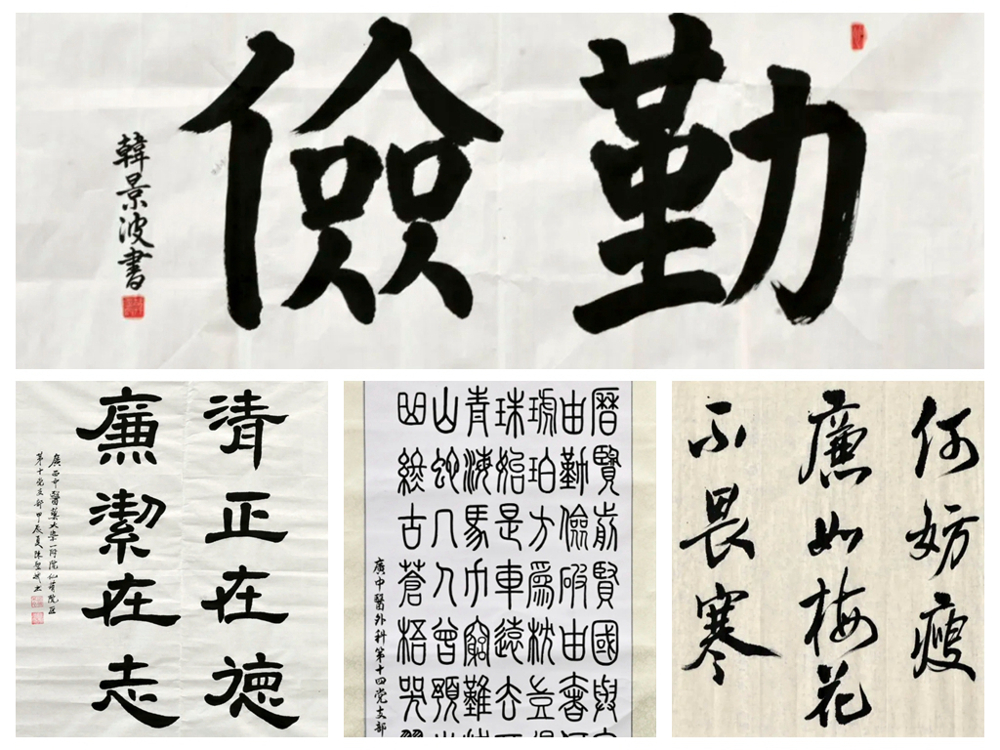 勤儉
韓景波書
清正在德
廉潔在志
廣西中醫藥大學一附院仁愛院區
第十党支部甲辰夏陳
厤覽前賢國與
由勤儉破由奢
琥珀方為枕豈得
珠始是車遠去
青海馬力窮難
山蛇几人曾預
曲終古蒼梧哭
廣中醫外科第十四党支部
何妨瘦
廉如梅花
不畏寒